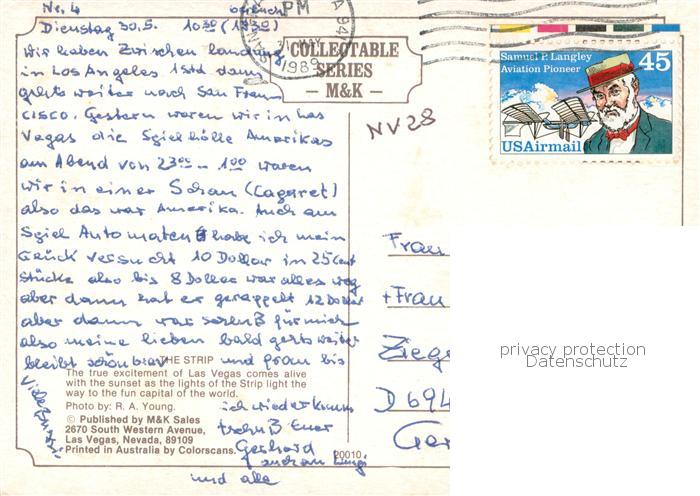 No. 4
Dienstag 30.5. 10 30 (1930)
Wir haben Zwischen landung
in Los Angeles 1 Std dann
gehts weiter nach San Fran
cisco. Gestern waren wir in Las
Vegas die Spielhölle Amerikas
am Abend von 23 00 - 1 00 waren
wir in einer Schau (Cagaret)
also das war Amerika. Auch am
Spiel Automaten habe ich mein
Glück versucht 10 Dollar in 25 Cent
Stücke also bis 8 Dollar war alles weg
aber dann hat er gerappelt 12 Dollar
aber dann war schluß für mich
also meine lieben bald gehts weiter
bleibt schön brav und gran bis
ich wieder komm
Euer
Gerhard
und alle
PM
1989
COLLECTABLE
SERIES
– M&K –
NV28
Samuel P. Langley
Aviation Pioneer
45
USAirmail
Frau
+ Frau
Ziege
D 694
Ger
privacy protection
Datenschutz
THE STRIP
The true excitement of Las Vegas comes alive
with the sunset as the lights of the Strip light the
way to the fun capital of the world.
Photo by: R. A. Young.
© Published by M&K Sales
2670 South Western Avenue,
Las Vegas, Nevada, 89109
Printed in Australia by Colorscans.
20010